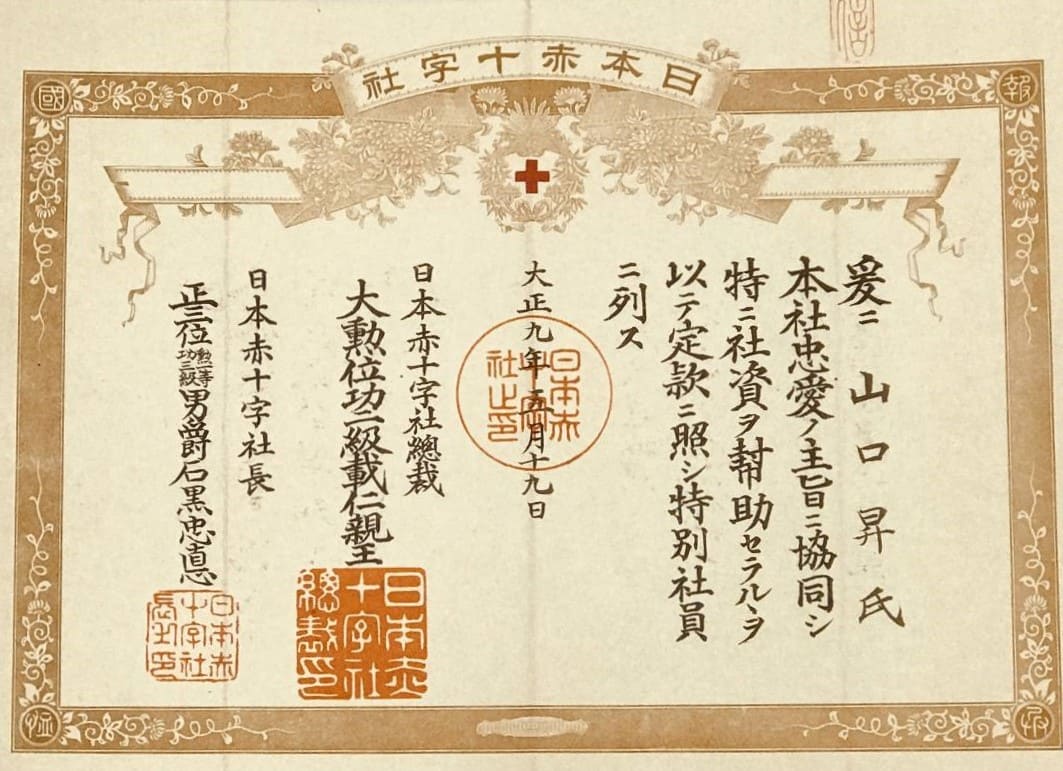 日本赤十字社
報
國
爰ニ 山口昇氏
本社忠愛ノ主旨ニ協同シ
特ニ社資ヲ幇助セラルヽヲ
以テ定款ニ照シ特別社員
ニ列ス
大正九年五月十九日
日本赤十字社之印
日本赤十字社總裁
大勳位功二級載仁親王
日本赤十字社總裁印
日本赤十字社長
正三位勲一等功三級男爵石黒忠悳
日本赤十字社長之印